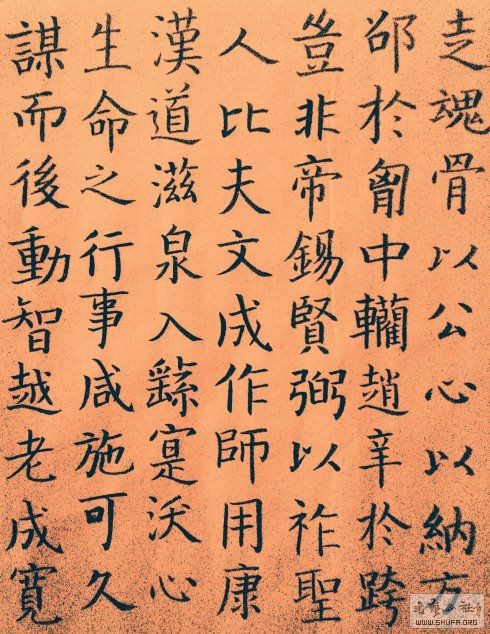 走魂骨以公心以納方
邵於胷中轥趙辛於跨
豈非帝錫賢弼以祚聖
人比夫文成作師用康
漢道滋泉入繇寔沃心
生命之行事咸施可久
謀而後動智越老成寬
WWW.SHUFA.ORG